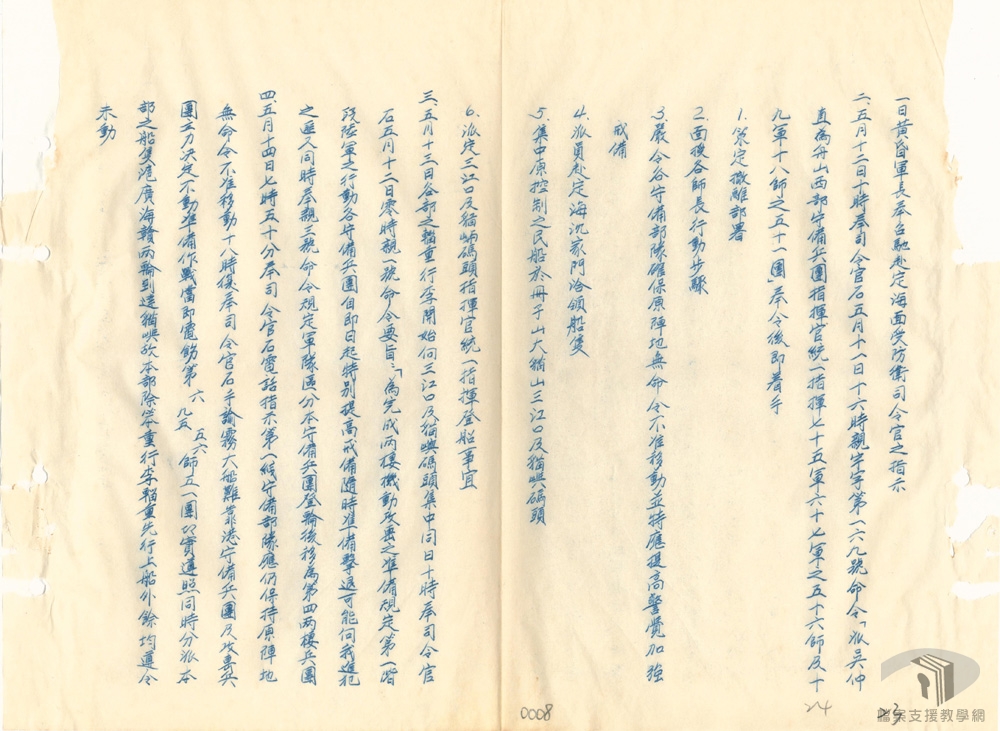 一日黃昏軍長奉召馳赴定海面受防衛司令官之指示
二、五月十二日十時奉司令官石五月十一日十六時親字第一六九號命令「派吳仲
直為舟山西部守備兵團指揮官統一指揮七十五軍六十七軍之五十六師及十
九軍十八師之五十一團」奉令後即着手
1.策定撤離部署
2.面授各師長行動步驟
3.嚴令各守備部隊確保原陣地無命令不准移動並特應提高警覺加強
戒備
4.派員赴定海沉家門洽領船隻
5.集中原控制之民船於冊子山大貓山三江口及貓嶼碼頭
6.派定三江口及貓嶼碼頭指揮官統一指揮登船事宜
三、五月十三日各部之輜重行李開始向三江口及貓嶼碼頭集中同日十時奉司令官
石五月十二日零時親一號命令要旨:「為先成兩棲機動反擊之准備規定第一階
段陸軍之行動各守備兵團自即日起特別提高戒備隨時准備擊退可能向我進犯
之匪人同時奉親三號命令規定軍隊區分本守備兵團登輪後移為第四兩棲兵團
四、五月十四日七時五十分奉司令官石電話指示第一線守備部隊應仍保持原陣地
無命令不准移動十八時復奉司令官石手諭霧大船難靠港守備兵團及攻擊兵
團工力決定不動準備作戰當即電飭第六九五五六師五一團切實遵照同時分派本
部之船隻滬廣海贛兩輪到達貓嶼故本部除笨重行李輜重先行上船外餘均遵令
未動
0008
24
23
檔案支援教學網